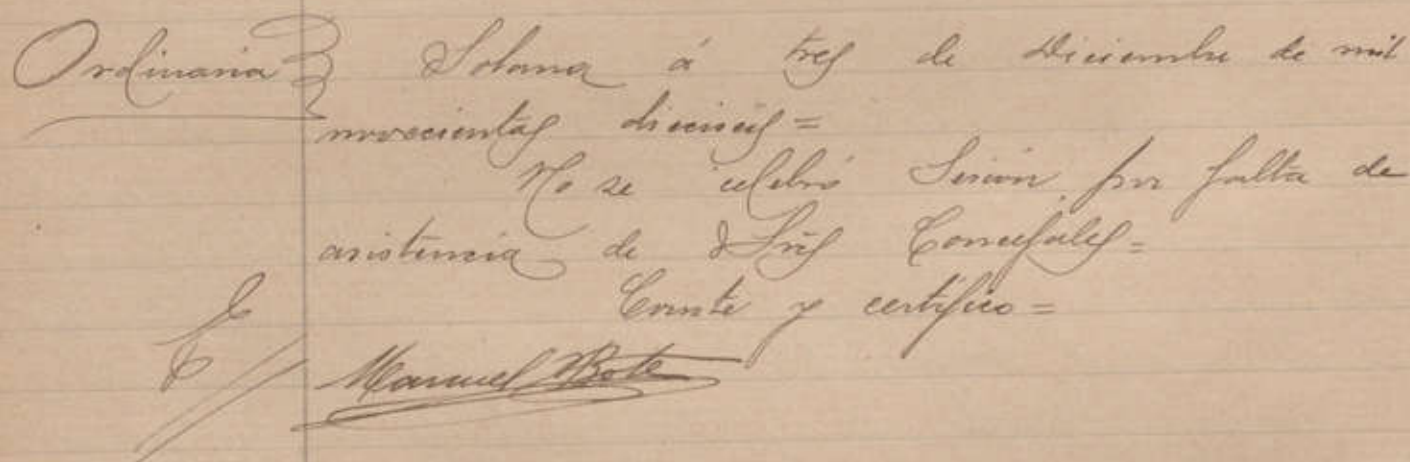 Ordinaria Solana á tres de Diciembre de mil
novecientos dieciseis =
No se celebró Sesion por falta de
asistencia de Sres Concejales =
Conste y certifico =
Manuel Bote